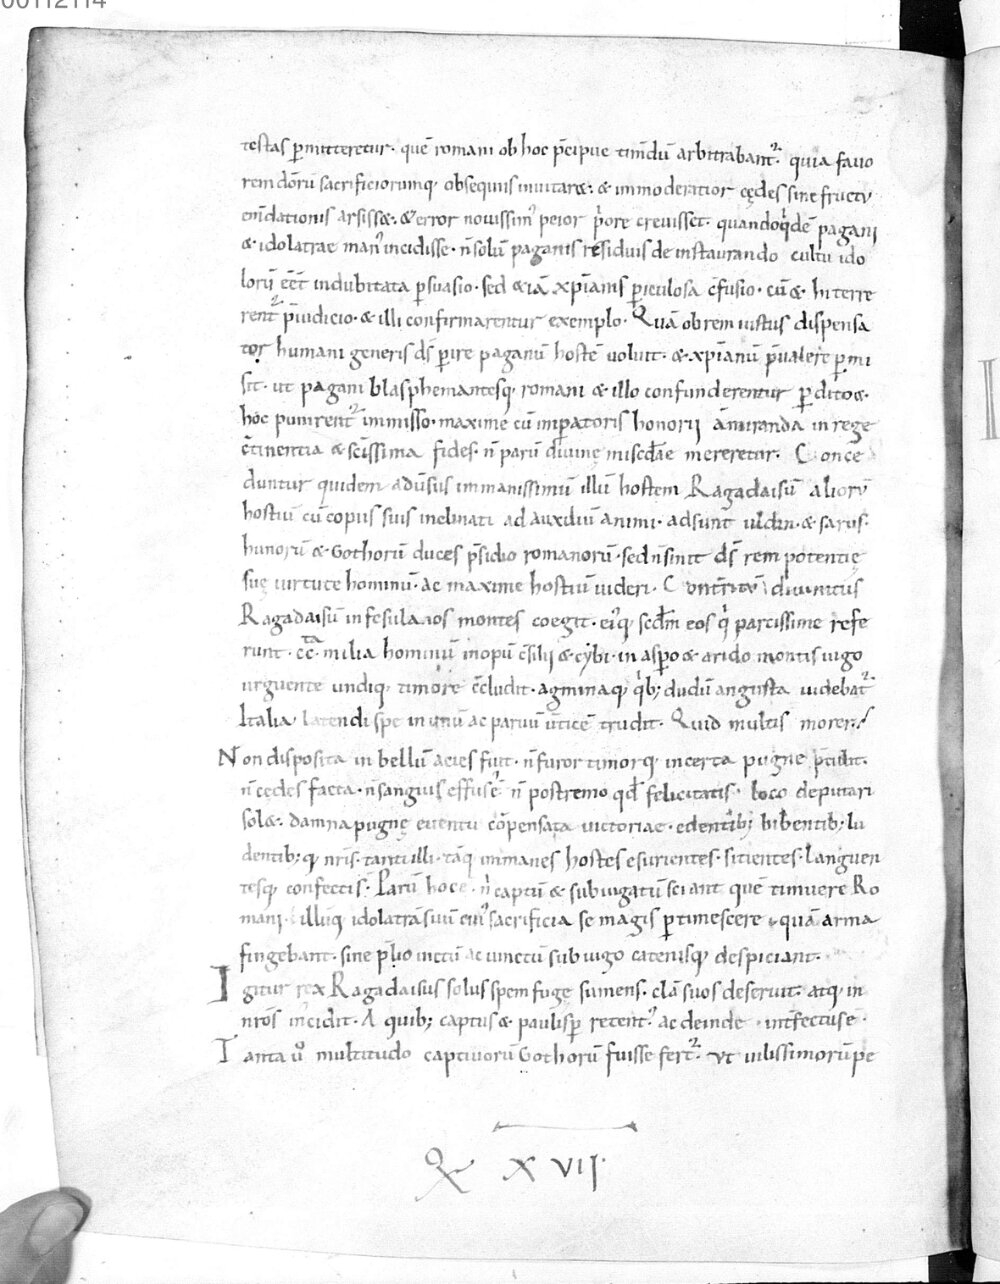 00112114
testas ꝑmitteretur· quē romani ob hoc p̄cipue timendū arbitrabant᷑· quia favo
rem dōrū sacrificiorumq; obsequiis inuitaræ· & inmoderatior cędes sine fructu
em̄dationis arsissæ· & error nouissim᷒ peior p̍ore creuisset· quandoq̍dē pagani
& idolatrae man᷒ incidisse· n̄ solū paganis residuis de instaurando cultu ido
lorū eēt indubitata ꝑsuasio· sed & iā xp̄ianis ꝑiculosa c̄fusio· cū & hi terre
rent᷑ p̄iudicio· & illi confirmarentur exemplo· Quā ob rem iustus dispensa
tor humani generis ds̄ ꝑire paganū hostē uoluit· & xp̄ianū p̄ualere ꝑmi
sit· ut pagani blasphemantesq; romani & illo confunderentur ꝑdito &
hoc punirent᷑ inmisso· maxime cū imꝑatoris honorii āmiranda in rege
c̄tinentia & sc̄issima fides· n̄ parū diuinę miscd̄ae mereretur· Conce
duntur quidem aduersus inmanissimū illū hostem Ragadaisū aliorū
hostiū cū copiis suis inclinati ad auxiliū animi· adsunt uldin· & sarus·
hunorū & Gothorū duces p̄sidio romanorū· sed n̄ sinit ds̄ rem potentię
suę uirtute hominū· ac maxime hostiū uideri· Conterritū diuinitus
Ragadaisū in fesulanos montes coegit· ei᷒q; scd̄m eos q̍ parcissime refe
runt· cc̄ta milia hominū inopū c̄silii & cybi· in asꝑo & arido montis iugo
urguente undiq; timore c̄cludit· agminaq; q̍b; dudū angusta uidebat᷑
Italia· latendi spe in unū ac paruū u̍ticē trudit· Quid multis morer·
Non disposita in bellū acies fuit· n̄ furor timorq; incerta pugnę p̄tulit·
n̄ cędes facta· n̄ sanguis effus᷒ ē n̄ postremo qd̄ felicitatis· loco deputari
solæ· damna pugnę euentu cōpensata uictoriae· edentib; bibentib; lu
dentib; q; nr̄is· tanti illi· tāq; inmanes hostes esurientes· sitientes· languen
tesq; confectis· Parū hoc ē· n̍ captū & subiugatū sciant quē timuere Ro
mani· illūq; idolatrā suū cui᷒ sacrificia se magis ꝑtimescere· quā arma
fingebant· sine p̄lio uictū ac uinctū sub iugo catenisq; despiciant·
Igitur rex Ragadaisus solus spem fugę sumens· clā suos deseruit· atq; in
nr̄os incidit· A quib; captus & paulisꝑ retent᷒ ac deinde int̄fectus ē·
Tanta u̍o multitudo captiuorū Gothorū fuisse fert᷑· ut uilissimorū pe
Q XVII·